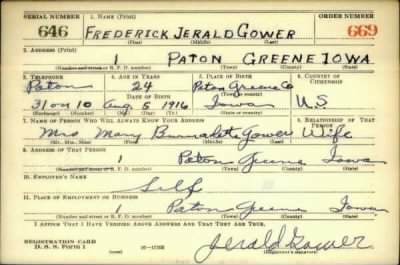 SERIAL NUMBER 1. NAME (Print) ORDER NUMBER
646 FREDERICK JERALD GOWER 669
(First) (Middle) (Last)
2. ADDRESS (Print)
1 PATON GREENE IOWA
(Number and street or R. F. D. number) (Town) (County) (State)
3. TELEPHONE 4. AGE IN YEARS 5. PLACE OF BIRTH 6. COUNTRY OF CITIZENSHIP
Paton 24 Paton Greene Co
DATE OF BIRTH (Town or county)
31 on 10 Aug. 5 1916 Iowa U.S
(Exchange) (Number) (Mo.) (Day) (Yr.) (State or country)
7. NAME OF PERSON WHO WILL ALWAYS KNOW YOUR ADDRESS 8. RELATIONSHIP OF THAT PERSON
Mrs Mary Gower Wife
(Mr., Mrs., Miss) (First) (Middle) (Last)
9. ADDRESS OF THAT PERSON
1 Paton Greene Iowa
(Number and street or R. F. D. number) (Town) (County) (State)
10. EMPLOYER'S NAME
Self
11. PLACE OF EMPLOYMENT OR BUSINESS
1 Paton Greene Iowa
(Number and street or R. F. D. number) (Town) (County) (State)
I AFFIRM THAT I HAVE VERIFIED ABOVE ANSWERS AND THAT THEY ARE TRUE.
REGISTRATION CARD
D. S. S. Form 1 Jerald Gower
(Registrant's signature)